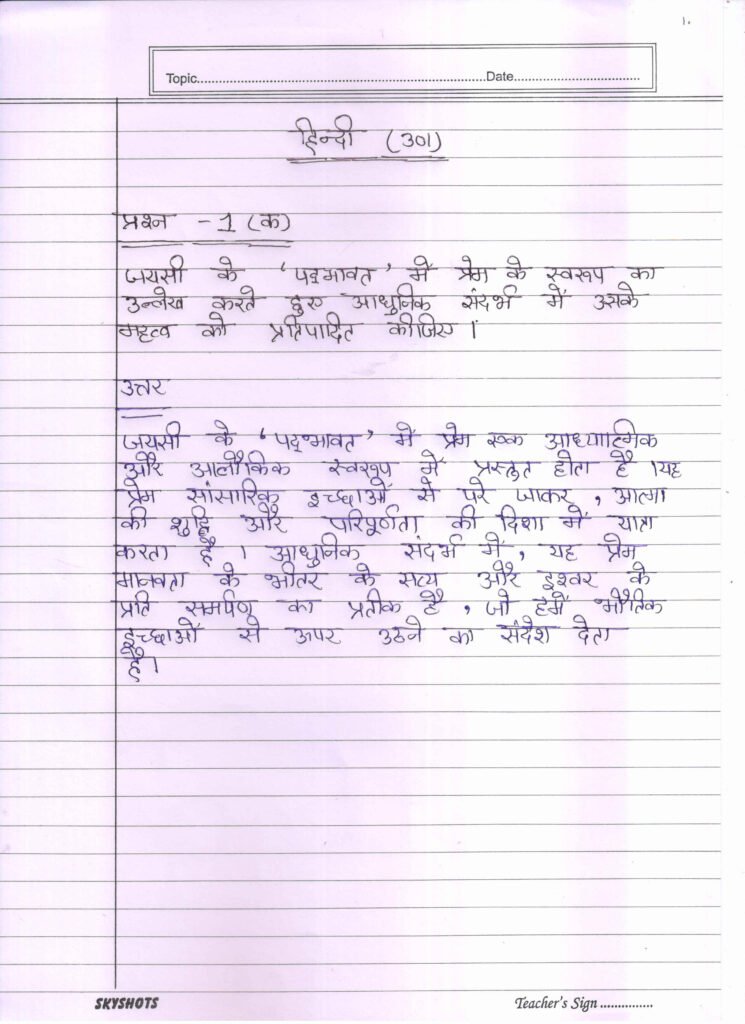 1.
Topic..........Date..........
हिन्दी (301)
प्रश्न - 1 (क)
जयसी के 'पद्मावत' में प्रेम के स्वरूप का
उल्लेख करते हुए आधुनिक संदर्भ में उसके
महत्व को प्रतिपादित कीजिए ।
उत्तर
जयसी के 'पद्मावत' में प्रेम एक आध्यात्मिक
और आलौकिक स्वरूप में प्रस्तुत होता है ।यह
प्रेम सांसारिक इच्छाओं से परे जाकर , आत्मा
की शुद्धि और परिपूर्णता की दिशा में यात्रा
करता है । आधुनिक संदर्भ में , यह प्रेम
मानवता के भीतर के सत्य और इश्वर के
प्रति समर्पण का प्रतीक है , जो हमें भौतिक
इच्छाओं से ऊपर उठने का संदेश देता
है ।
SKYSHOTS Teacher's Sign ...............